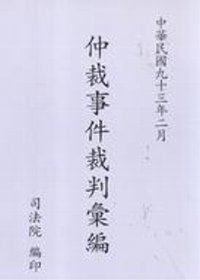 中華民國九十三年二月
仲裁事件裁判彙編
司法院 編印